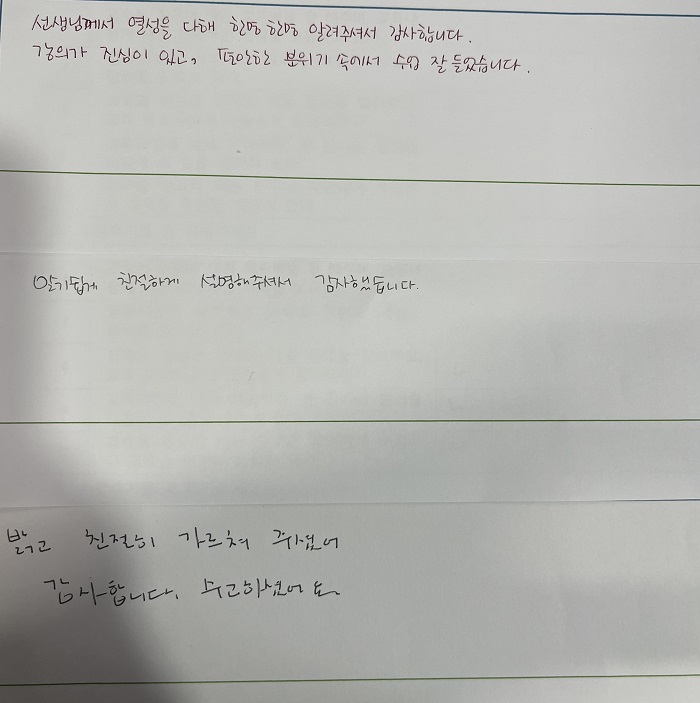 선생님께서 열성을 다해 한명 한명 알려주셔서 감사합니다.
강의가 진심이 있고, 편안한 분위기 속에서 수업 잘 들었습니다.
알기쉽게 친절하게 설명해주셔서 감사했습니다.
밝고 친절히 가르쳐 주셨어
감사합니다. 수고하셨어요